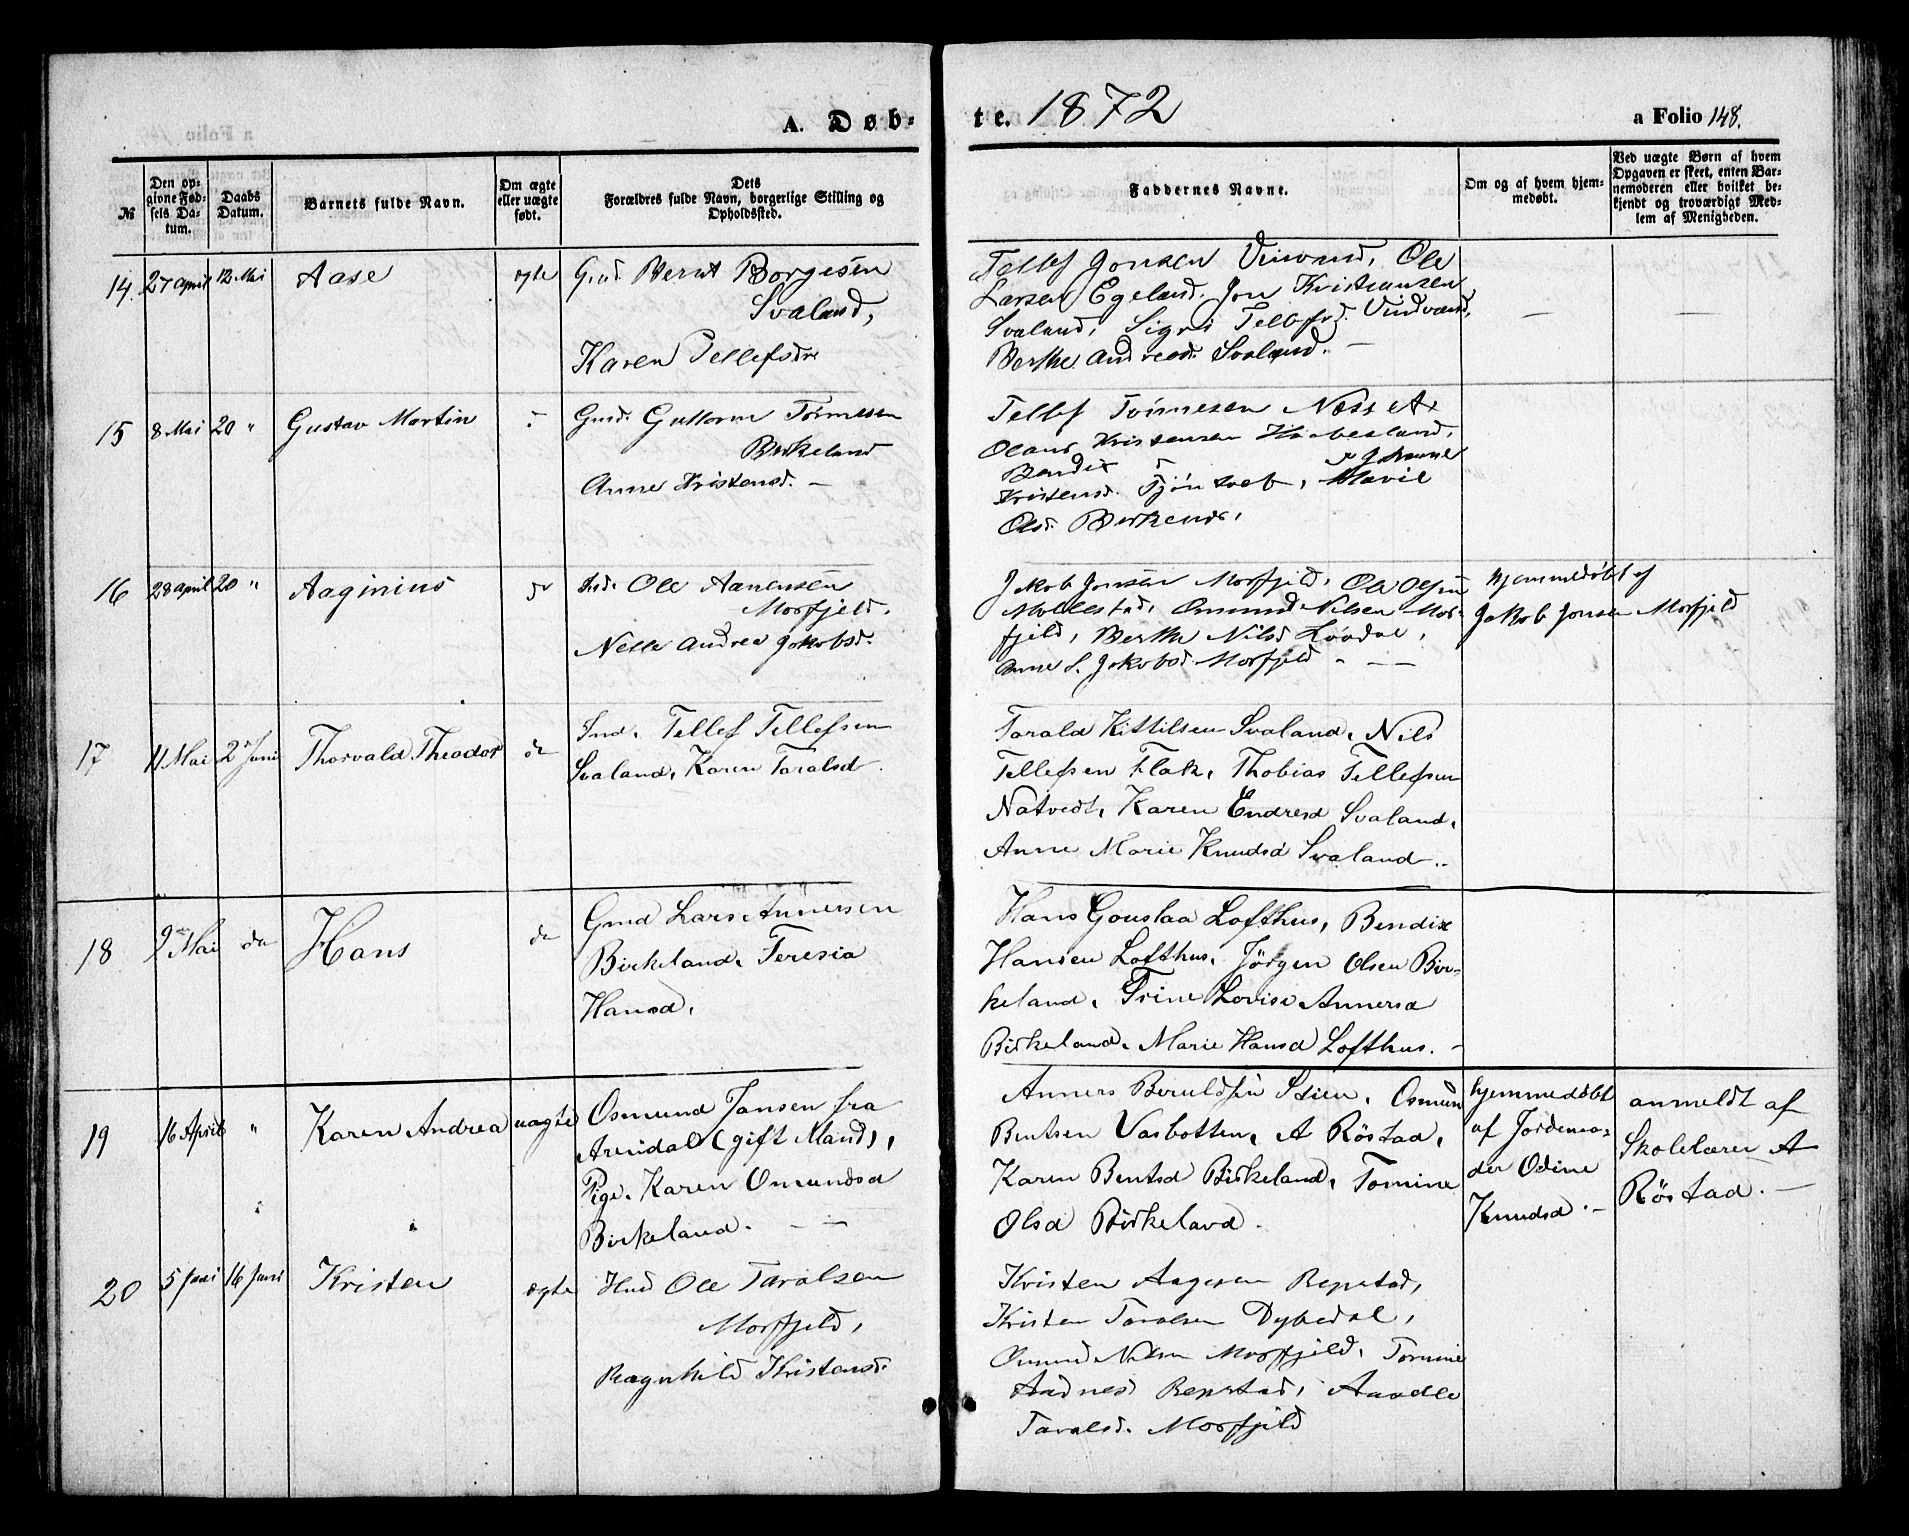 A. Døb-
te. 1872
a Folio 148.
№
Den op-
givne Fød-
sels Da-
tum.
Daabs
Datum.
Barnets fulde Navn.
Om ægte
eller uægte
født.
Dets
Forældres fulde Navn, borgerlige Stilling og
Opholdssted.
Faddernes Navne.
Om og af hvem hjem-
medøbt.
Ved uægte Børn af hvem
Opgaven er skeet, enten Bar-
nemoderen eller hvilket be-
kjendt og troværdigt Med-
lem af Menigheden.
14. 27 April 12 Mai Aase ægte
Gmd. Bernt Borgesen
Svaland,
Karen Tellefsdr
Tellef Jonsen Vinvand, Ole
Larsen Egeland, Jon Kristiansen
Svaland, Sigri Tellefsd. Vindvand,
Berthe Andreasd. Svaland. —
—
—
15 8 Mai 20 " Gustav Martin
Gmd. Guttorm Tørresen
Birkeland
Anne Kristensd. —
Tellef Tørresen Næsset
Olaus Kristensen Haabesland,
Bendix
Kristensd. Tjøntveb, Mavie
Olsd. Birkeland,
16 28 April 20 " Aaginius do
Ole Aanensen
Morfjeld.
Nelle Andrea Jakobsd.
Jakob Jonsen Morfjeld, Ole Olsen
Mollestad, Osmund Nilsen Mor-
fjeld, Berthe Nilsd Løvdal,
Anne S. Jakobsd Morfjeld - — —
Hjemmedøbt af
Jakob Jonsen Morfjeld
17 11 Mai 2 Juni Thorvald Theodor do
Tellef Tellefsen
Svaland, Karen Taralsd.
Tarald Kittilsen Svaland, Nils
Tellefsen Flak, Thobias Tellefsen
Natvedt, Karen Endresd Svaland,
Anne Marie Knudsd Svaland.
18 9 Mai do Hans do
Gmd Lars Annersen
Birkeland, Teresia
Hansd.
Hans Gouslaa Lofthus, Bendix
Hansen Lofthus, Jörgen Olsen Bir-
keland, Trine Lovise Annersd
Birkeland, Marie Hansd Lofthus. -
19 16 April " Karen Andrea uægte
Osmund Jansen fra
Arendal (gift Mand),
Pige. Karen Omundsd
Birkeland. — —
Anners Beruldsen Stien, Osmun
Bentsen Vasbotten, A Röstad,
Karen Bentsd Birkeland, Tomine
Olsd Birkeland.
hjemmedøbt
af Jordemo-
der Odine
Knudsd. -
anmeldt af
Skolelærer A
Röstad. —
20 5 Juni 16 Juni Kristen ægte
Hmd Ole Taralsen
Morfjeld,
Ragnhild Kristensd.
Kristen Aagesen Repstad,
Kristen Taralsen Dybedal,
Osmund Nilsen Morfjeld, Tomine
Aadnesd Repstad, Aasele
Taralsd. Morfjeld